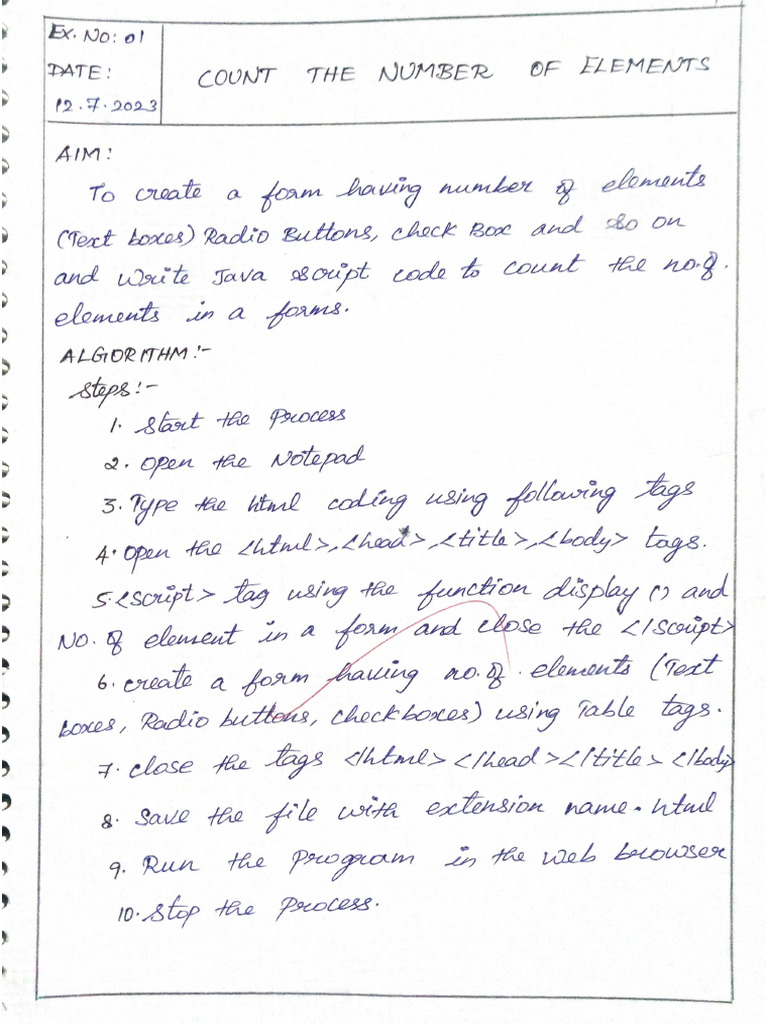 EX. NO: 01
DATE:
12.7.2023
COUNT THE NUMBER OF ELEMENTS
AIM:
To create a form having number of elements
(Text boxes) Radio Buttons, check Box and so on
and write Java script code to count the no.of.
elements in a forms.
ALGORITHM:-
Steps:-
1. Start the Process
2. Open the Notepad
3. Type the html coding using following tags
4. Open the <html>,<head>,<title>,<body> tags.
5.<Script> tag using the function display () and
No. of element in a form and close the </Script>
6. create a form having no.of. elements (Text
boxes, Radio buttons, checkboxes) using Table tags.
7. close the tags </html></head></title></body>
8. Save the file with extension name.html
9. Run the program in the web browser
10. Stop the Process.